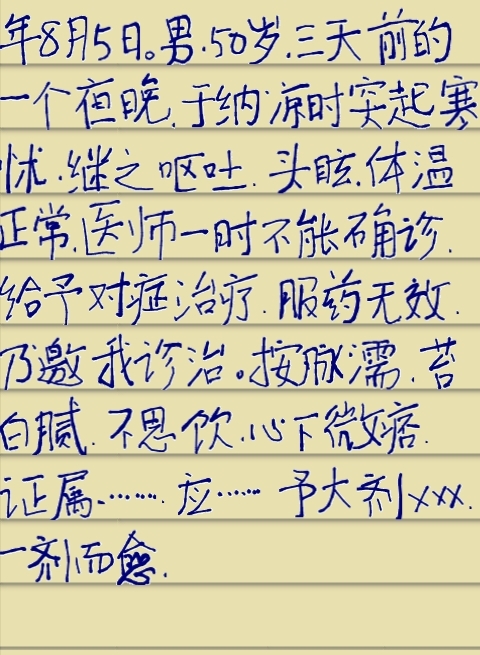 年8月5日。男.50岁.三天前的
一个夜晚.于纳凉时突起寒
怵.继之呕吐.头眩.体温
正常.医师一时不能确诊.
给予对症治疗.服药无效.
乃邀我诊治。按脉濡.苔
白腻.不思饮.心下微痞.
证属.……应……予大剂xxx.
一剂而愈.